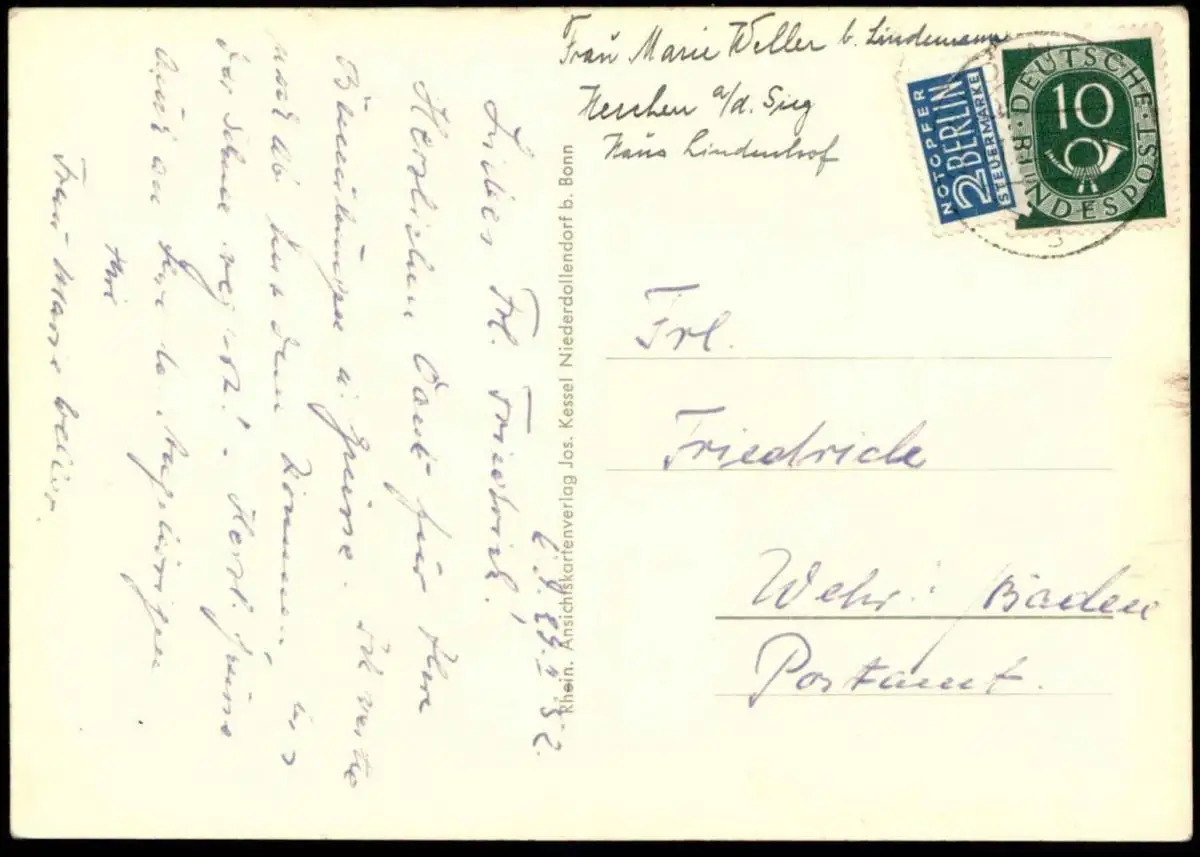 Frau Marie Weller b. Lindemann
Herchen a/d. Sieg
Haus Lindenhof
NOTOPFER
2 BERLIN
STEUERMARKE
DEUTSCHE BUNDESPOST
10
Frl.
Friedrich
Wehr: / Baden
Postamt.
Rhein. Ansichtskartenverlag Jos. Kessel Niederdollendorf b. Bonn
52.
Liebes Frl. Friedrich!
Herzlichen Dank für Ihre
Bemühungen u. Grüsse. Ich werde
kommen,
der Sohne Herzl. Grüsse
auch an Ihre lb. Angehörigen
Ihre
Frau Marie Weller.